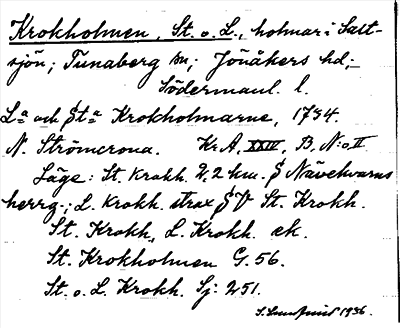 Krokholmen, St. o. L., holmar i Salt-
sjön; Tunaberg sn; Jönåkers hd;
Södermanl. l.
La och Sta Krokholmarne, 1734.
N. Strömcrona. Kr.A. XXIV, B. N:o II
Läge: St. Krokh. 2,2 km. S Nävekvarns
herrg.; L. Krokh. strax SV St. Krokh.
St. Krokh., L. Krokh. ek.
St. Krokholmen G. 56.
St. o. L. Krokh. Sj: 251.
1936.